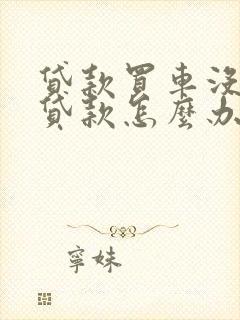 貸款買車沒
貸款怎麼办
寧妹